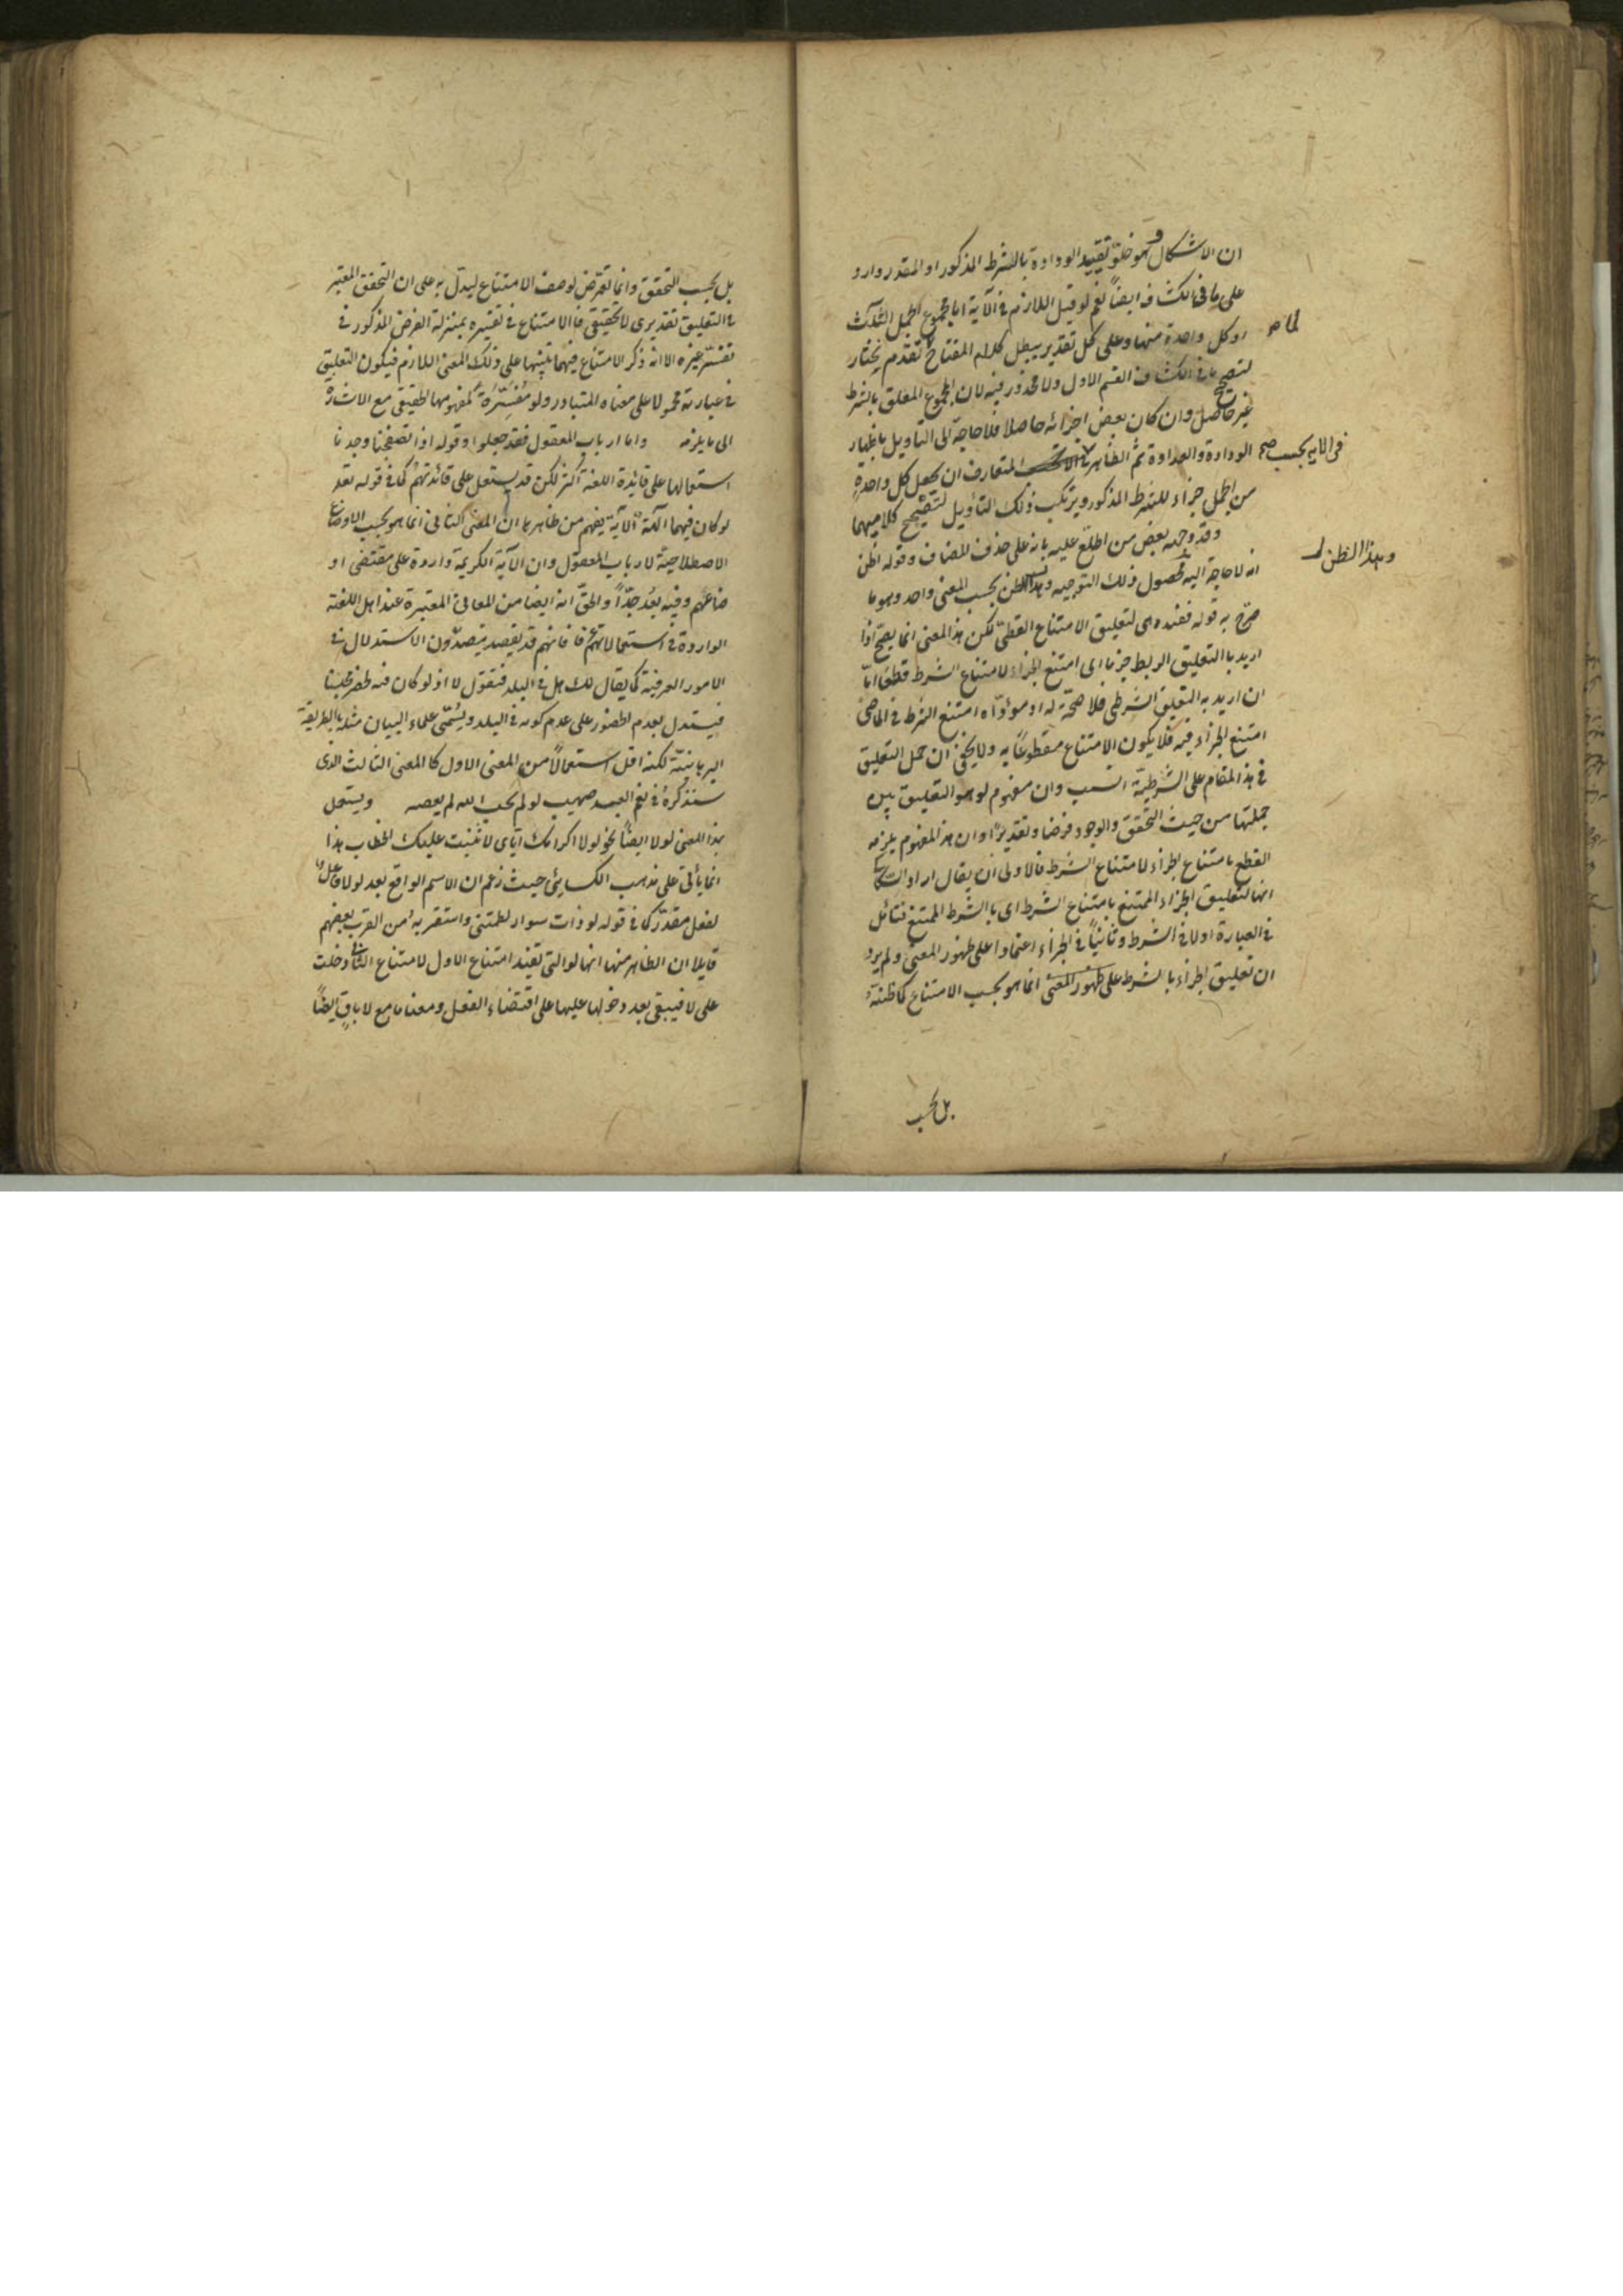 ان الاشكال وهو خلو تقييد الودادة بالشرط المذكور او المقدر وارد
على ما في الكشاف ايضاً نعم لو قيل اللازم في الآية اما مجموع الجمل الثلث
او كل واحدة منها وعلى كل تقدير يبطل كلام المفتاح لما تقدم يختار
لتصحيح ما في الكشاف القسم الاول ولا محذور فيه لان المجموع المعلق بالشرط
غير حاصل وان كان بعض اجزائه حاصلا فلا حاجة الى التأويل باظهار
الودادة والعداوة ثم الظاهر في الآية بحسب المتعارف ان يجعل كل واحدة
من الجمل جزاء للشرط المذكور ويرتكب ذلك التأويل لتصحيح كلاميهما
وقد وجهه بعض من اطلع عليه بانه على حذف المضاف وقوله اظن
انه لا حاجة اليه لحصول ذلك التوجيه وهذا الظن بحسب المعنى واحد وهو ما
صرح به قوله فعنده هى لتعليق الامتناع القطعى لكن هذا المعنى انما يصح اذا
اريد بالتعليق الربط جزما اى امتنع الجزاء لامتناع الشرط قطعا اما
ان اريد به التعليق الشرطى فلا صحة له اذ مؤداه ان امتنع الشرط في الماضى
امتنع الجزاء فيه فلا يكون الامتناع مقطوعاً به ولا يخفى ان حمل التعليق
في هذا المقام على الشرطية انسب وان مفهوم لو هو التعليق بين
جملتها من حيث التحقق والوجود فرضا وتقديرًا وان هذا المفهوم يلزمه
القطع بامتناع الجزاء لامتناع الشرط فالاولى ان يقال اراد السكاكى
انها لتعليق الجزاء الممتنع بامتناع الشرط اى بالشرط الممتنع فتسامح
في العبارة اولا في الشرط وثانياً في الجزاء اعتمادا على ظهور المعنى ولم يرد
ان تعليق الجزاء بالشرط على ظهور المعنى انما هو بحسب الامتناع كما ظنه
بل بحسب
وهذا الظن
في الاية بحسب صح
لما
بل بحسب التحقق وانما تعرض لوصف الامتناع ليدل به على ان التحقق المعتبر
في التعليق تقديرى لا تحقيقى فالامتناع في تفسيره بمنزلة الفرض المذكور في
تفسير غيره الا انه ذكر الامتناع فيهما تنبيها على ذلك المعنى اللازم فيكون التعليق
في عبارته محمولا على معناه المتبادر ولو مفسرة بمفهومها الحقيقى مع الاشارة
الى ما يلزمه واما ارباب المعقول فقد جعلوا وقوله اذا تصفحنا وجدنا
استعمالها على قائدة اللغة اكثر لكن قد يستعمل على قائدتهم كما في قوله تعه
لو كان فيهما الهة الآية يفهم من ظاهرها ان المعنى الثانى انما هو بحسب الاوضاع
الاصطلاحية لارباب المعقول وان الآية الكريمة واردة على مقتضى او
ضاعهم وفيه بعد جدًّا والحق انه ايضا من المعانى المعتبرة عند اهل اللغة
الواردة في استعمالاتهم عرفا فانهم قد يقصدون الاستدلال في
الامور العرفية كما يقال لك هل في البلد فتقول لا اذ لو كان فيه لحضر مجلسنا
فيستدل بعدم الحضور على عدم كونه في البلد ويسمى علماء البيان مثله بالطريقة
البرهانية لكنه اقل استعمالاً من المعنى الاول كالمعنى الثالث الذى
سنذكره في نعم العبد صهيب لو لم يخف الله لم يعصه ويستعمل
بهذا المعنى لولا ايضاً نحو لولا اكرامك اياى لاثنيت عليك لخطاب هذا
انما يأتى على مذهب الكسائى حيث زعم ان الاسم الواقع بعد لولا فاعل
لفعل مقدر كما في قوله لو ذات سوار لطمتنى واستقر به من القرب بعضهم
قايلا ان الظاهر منها انها لو التى تفيد امتناع الاول لامتناع الثانى دخلت
على لا فيبقى بعد دخولها عليها على اقتضاء الفعل ومعناها مع لا باق ايضاً